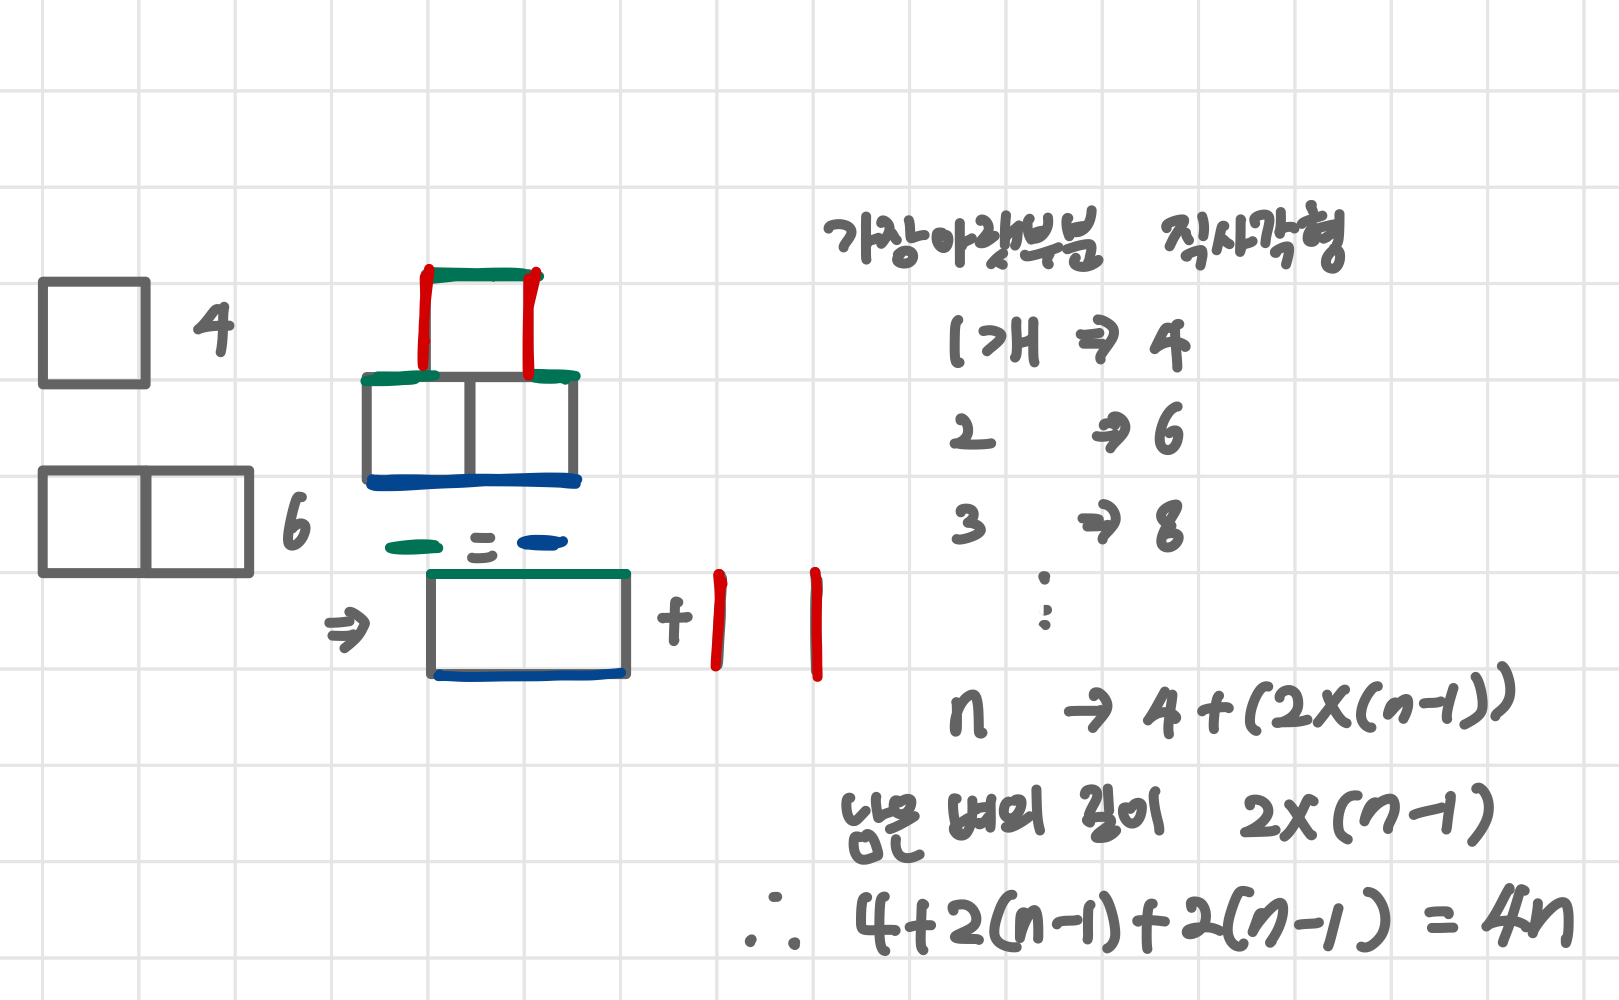 가장아랫부분 직사각형
4
1개 ⇒ 4
2 ⇒ 6
6
3 ⇒ 8
=
⋮
⇒ +
n → 4+(2×(n-1))
남은 변의 길이 2×(n-1)
∴ 4+2(n-1)+2(n-1) = 4n